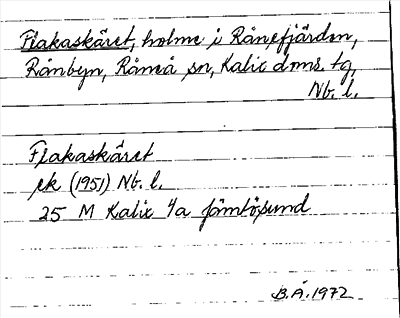 Flakaskäret, holme i Rånefjärden,
Rånbyn, Råneå sn, Kalix doms. tg,
Nb. l.
Flakaskäret
ek (1951) Nb. l.
25 M Kalix 4a Jämtösund
B.Å. 1972